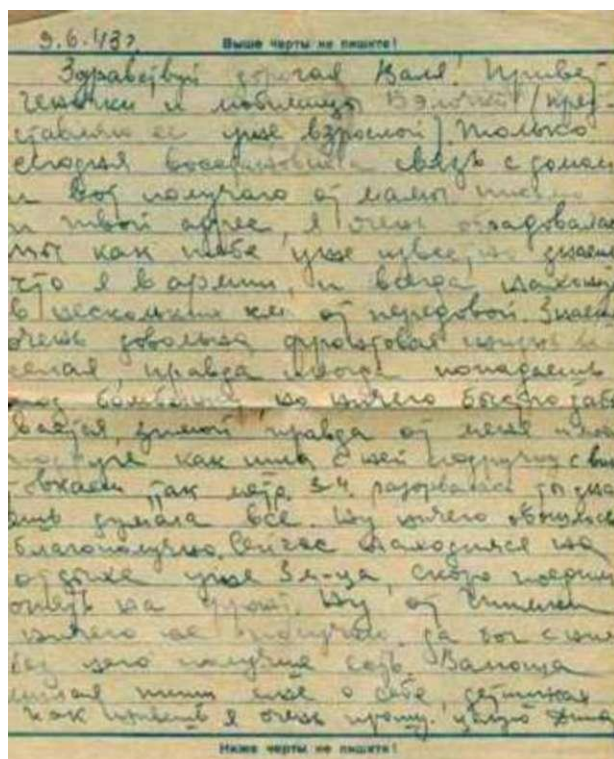 9.6.43г. Выше черты не пишите!
Здравствуй дорогая Валя! Привет
Геночки и любимицы Вэлочки (пред
ставляю её уже взрослой). Только
сегодня восстановила связь с домом
и вот получаю от мамы письмо
и твой адрес, я очень обрадовалась
ты как тебе уже известно знаешь
что я в армии, и всегда нахожусь
в нескольких км от передовой. Знаешь
очень довольна фронтовая жизнь ве
селая правда иногда попадаешь
под бомбёжку, но ничего быстро забы
вается, зимой правда от меня и
подруги как шла с ней подручку с
так метр. 3-4 разорвалась ты зна
ешь думала все. Ну ничего обошлось
благополучно. Сейчас находимся на
отдыхе уже 3 м-ца, скоро поедим
опять на фронт. Ну от
ничего не получаю, да вот с
его получше есть. Валюша
милая пиши мне о себе, детишках
как живешь я очень прошу. целую
Ниже черты не пишите!